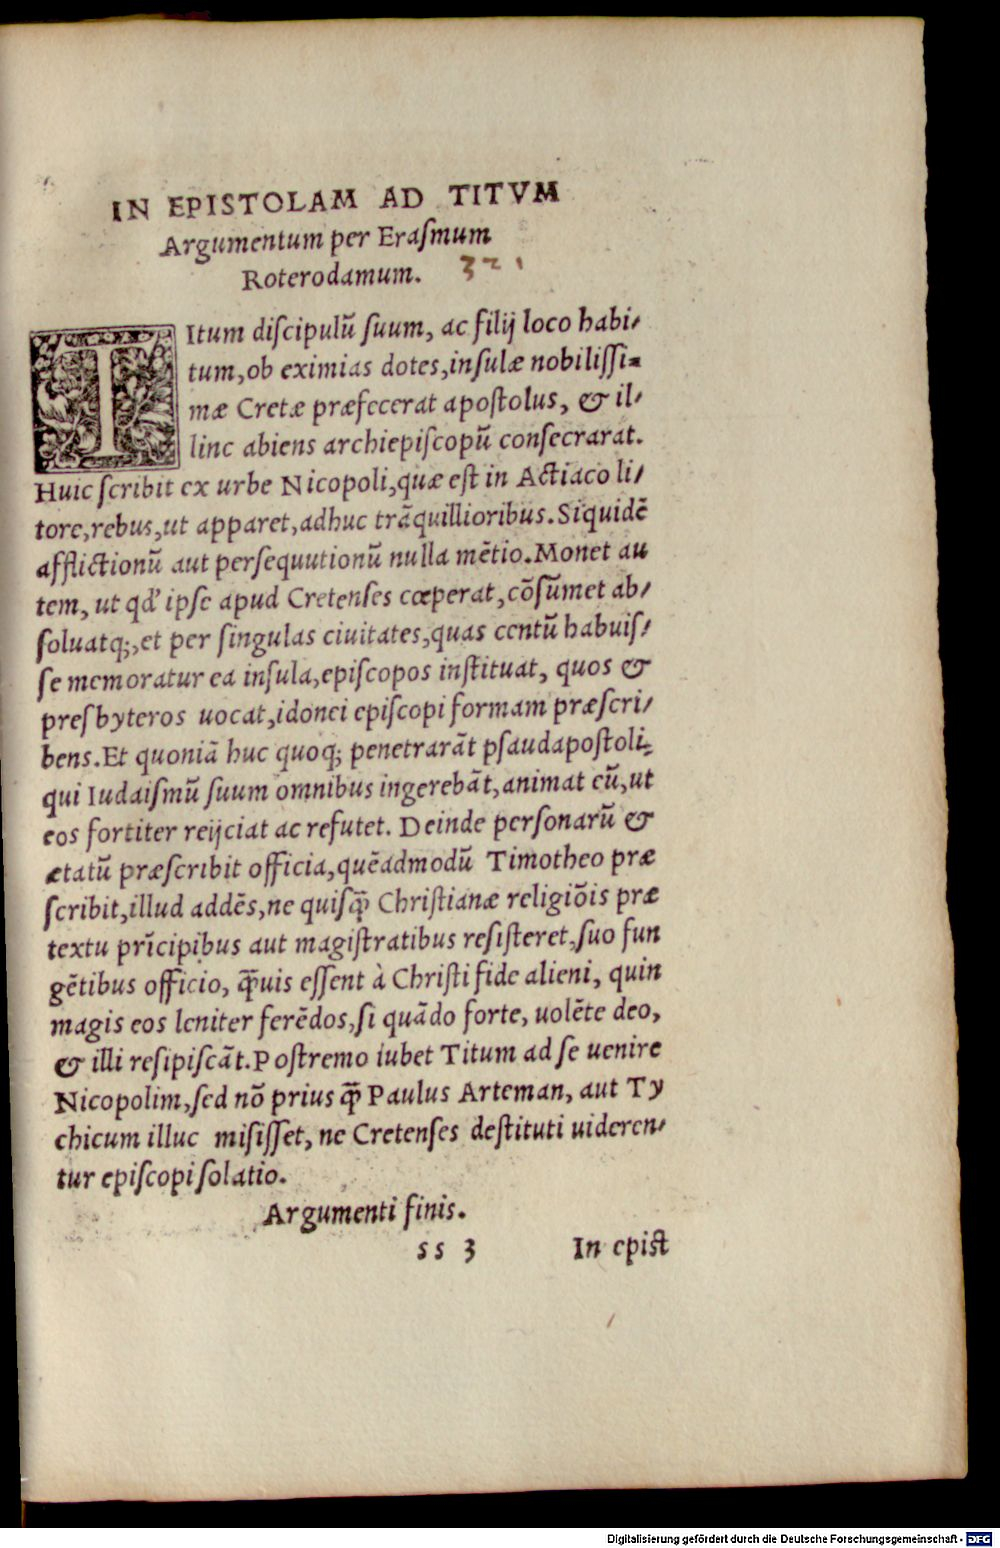 IN EPISTOLAM AD TITVM
Argumentum per Eraſmum
Roterodamum. 321
TItum diſcipulū ſuum, ac filij loco habi⸗
tum, ob eximias dotes, inſulæ nobiliſſi⸗
mæ Cretæ præfecerat apoſtolus, & il⸗
linc abiens archiepiſcopū conſecrarat.
Huic ſcribit ex urbe Nicopoli, quæ eſt in Actiaco li⸗
tore, rebus, ut apparet, adhuc trāquillioribus. Siquidē
afflictionū aut perſequutionū nulla mētio. Monet au
tem, ut qd' ipſe apud Cretenſes cœperat, cōſūmet ab⸗
ſoluatq;, et per ſingulas ciuitates, quas centū habuiſ⸗
ſe memoratur ea inſula, epiſcopos inſtituat, quos &
preſbyteros uocat, idonei epiſcopi formam præſcri⸗
bens. Et quoniā huc quoq; penetrarāt pſaudapoſtoli,
qui Iudaiſmū ſuum omnibus ingerebāt, animat eū, ut
eos fortiter reijciat ac refutet. Deinde perſonarū &
ætatū præſcribit officia, quēadmodū Timotheo præ
ſcribit, illud addēs, ne quiſq̄ Chriſtianæ religiōis præ
textu prīcipibus aut magiſtratibus reſiſteret, ſuo fun
gētibus officio, q̄uis eſſent à Chriſti fide alieni, quin
magis eos leniter ferēdos, ſi quādo forte, uolēte deo,
& illi reſipiſcāt. Poſtremo iubet Titum ad ſe uenire
Nicopolim, ſed nō prius q̄ Paulus Arteman, aut Ty
chicum illuc miſiſſet, ne Cretenſes deſtituti uideren⸗
tur epiſcopi ſolatio.
Argumenti finis.
ss 3 In epiſt
Digitalisierung gefördert durch die Deutsche Forschungsgemeinschaft - DFG